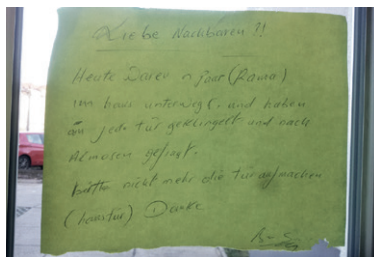 Liebe Nachbaren ?!
Heute Waren n paar (Roma)
im haus unterwegs. und haben
an jede tür geklingelt und nach
Almosen gefragt.
bitte nicht mehr die tür aufmachen
(haustür) Danke